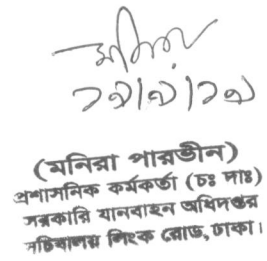 মনিরা
১৯/৯/১৯
(মনিরা পারভীন)
প্রশাসনিক কর্মকর্তা (চঃ দাঃ)
সরকারি যানবাহন অধিদপ্তর
সচিবালয় লিংক রোড, ঢাকা।